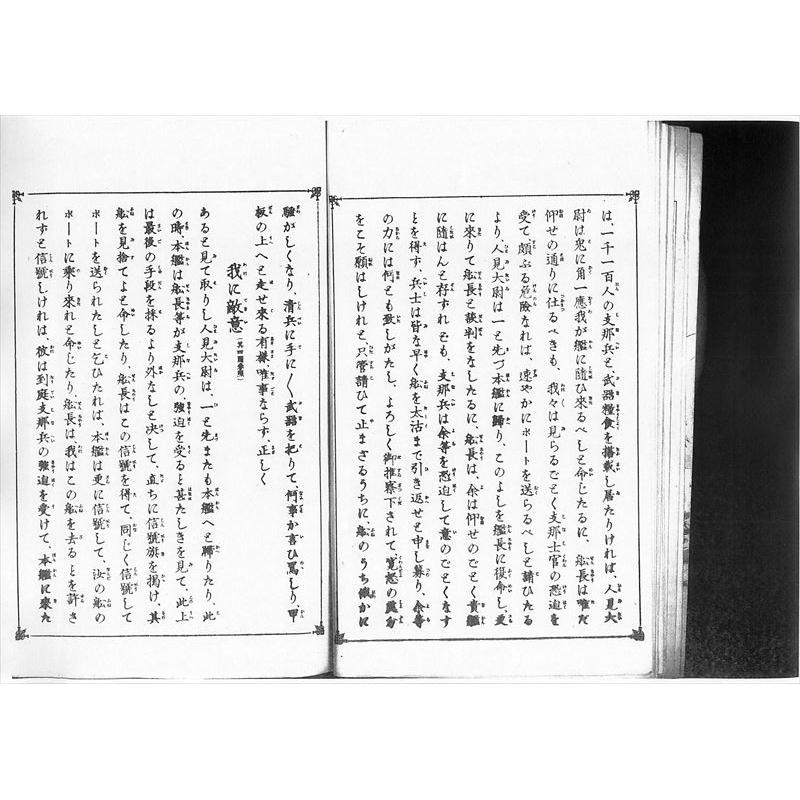 は、一千一百人の支那兵と武器糧食を搭載し居たりければ、人見大
尉は兎に角一應我が艦に隨ひ來るべしと命じたるに、船長は唯だ
仰せの通りに仕るべきも、我々は見らるごとく支那士官の恐迫を
受て頗ぶる危險なれば、速やかにボートを送らるべしと請ひたる
より人見大尉は一と先づ本艦に歸り、このよしを艦長に復命し、更
に來りて船長と談判をなしたるに、船長は、余は仰せのごとく貴艦
に隨はんと存すれども、支那兵は余等を恐迫して意のごとくなす
とを得ず、兵士は皆な早く船を太沽まで引き返せと申し募り、余等
の力には何とも致しがたし、よろしく御推察下されて寛恕の
をこそ願はしけれと、只管請ひて止まざるうちに、船のうち俄かに
騷がしくなり、清兵に手に〳〵武器を把りて、何事か言ひ罵しり、甲
板の上へと走せ來る有樣、唯事ならず、正しく
我に敵意
あると見て取りし人見大尉は、一と先またも本艦へと歸りたり、此
の時、本艦は船長等が支那兵の、強迫を受ると甚たしきを見て、此上
は最後の手段を採るより外なしと決して、直ちに信號旗を揭け、其
船を見捨てよと命したり、船長はこの信號を得て、同じく信號して
ボートを送られたしと乞ひたれば、本艦は更に信號して、汝の船の
ボートに乘り來れと命じたり、船長は、我はこの船を去るとを許さ
れずと信號しければ、彼は到底支那兵の強迫を受けて、本艦に來た